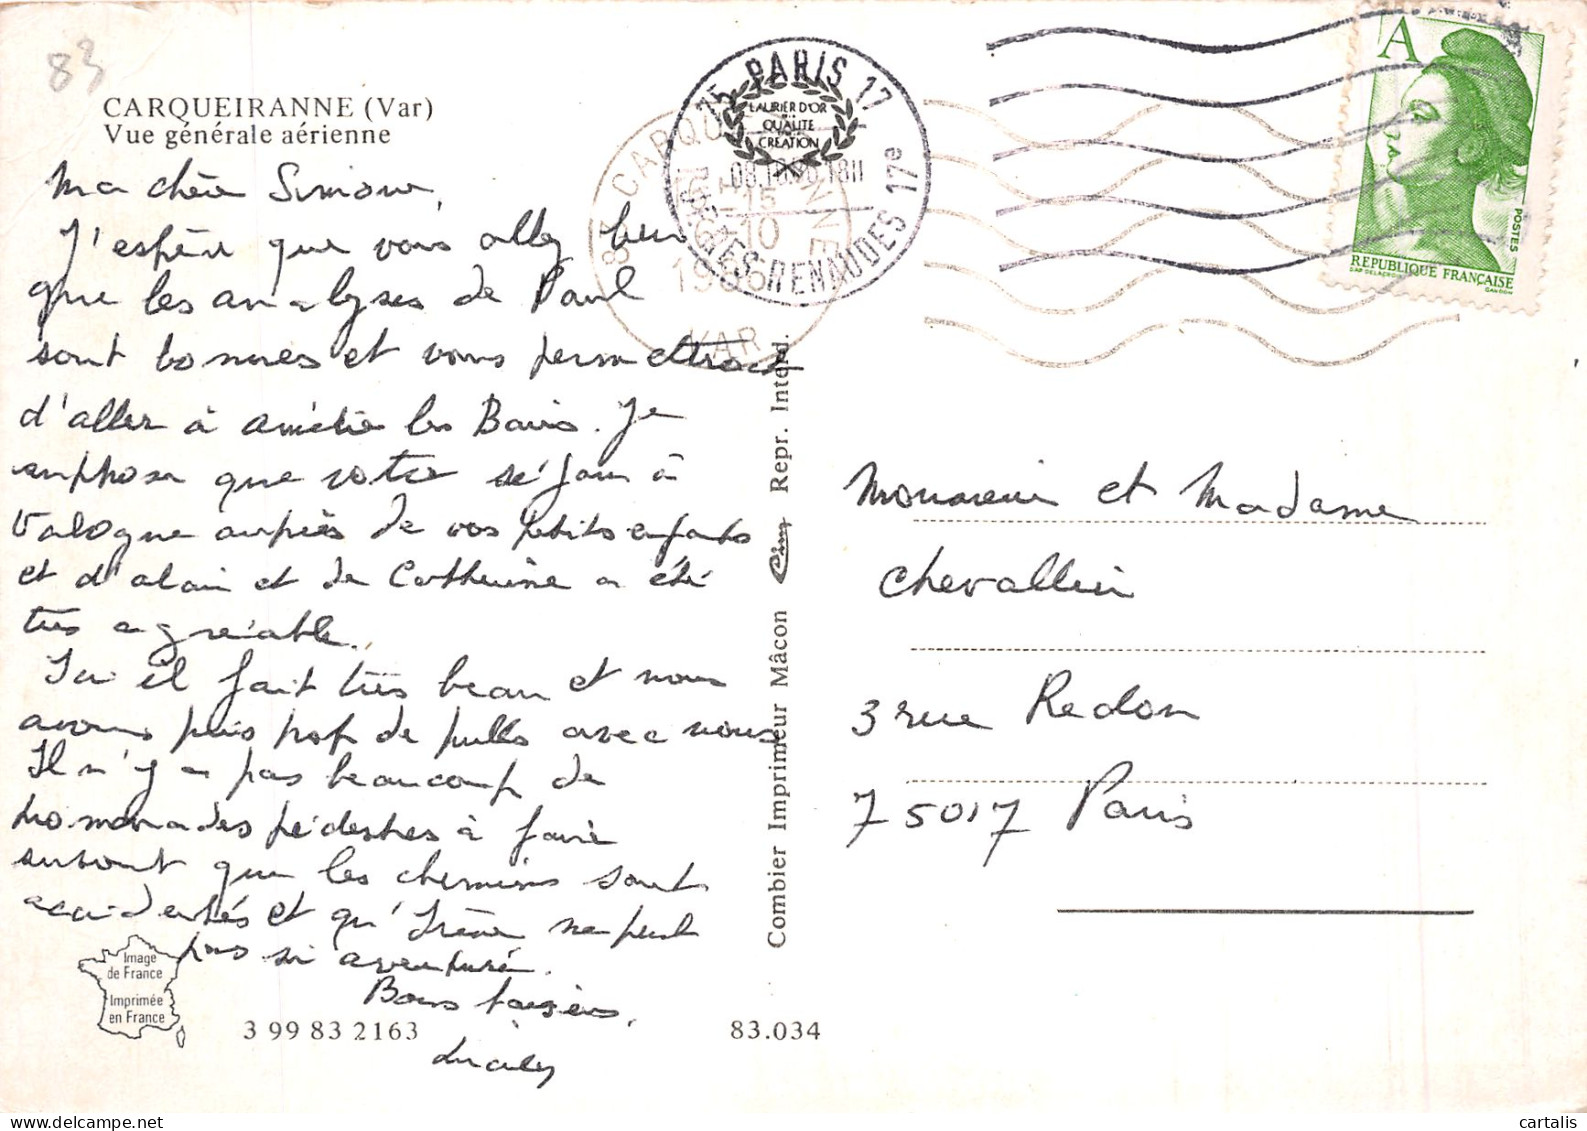 83
CARQUEIRANNE (Var)
Vue générale aérienne
Ma chère Simone,
J'espère que vous allez bien
que les analyses de Paul
sont bonnes et vous permettront
d'aller à Amélie les Bains. Je
suppose que votre séjour à
Valogne auprès de vos petits enfants
et d'Alain et de Catherine a été
très agréable.
Ici il fait très beau et nous
avons pris trop de pulls avec nous
Il n'y a pas beaucoup de
promenades pédestres à faire
surtout que les chemins sont
accidentés et qu' Irène ne peut
pas s'y aventurer.
Bons baisers,
Image
de France
Imprimée
en France
3 99 83 2163
83.034
Combier Imprimeur Mâcon Cim Repr. Interd.
75 PARIS 17
LAURIER D'OR
QUALITE
CREATION
RENAUDES 17e
83 CARQUEIRANNE
15
-10
1986
VAR
A
POSTES
REPUBLIQUE FRANÇAISE
GANDON
Monsieur et Madame
Chevallier
3 rue Redon
75017 Paris
cartalis